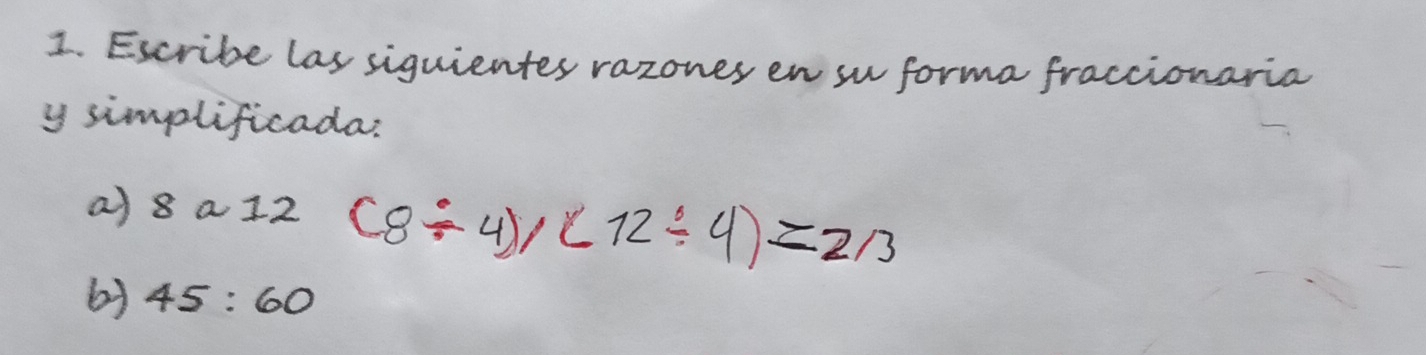 1. Escribe las siguientes razones en su forma fraccionaria
y simplificada:
a) 8 a 12 (8 ÷ 4)/(12 ÷ 4) = 2/3
b) 45 : 60